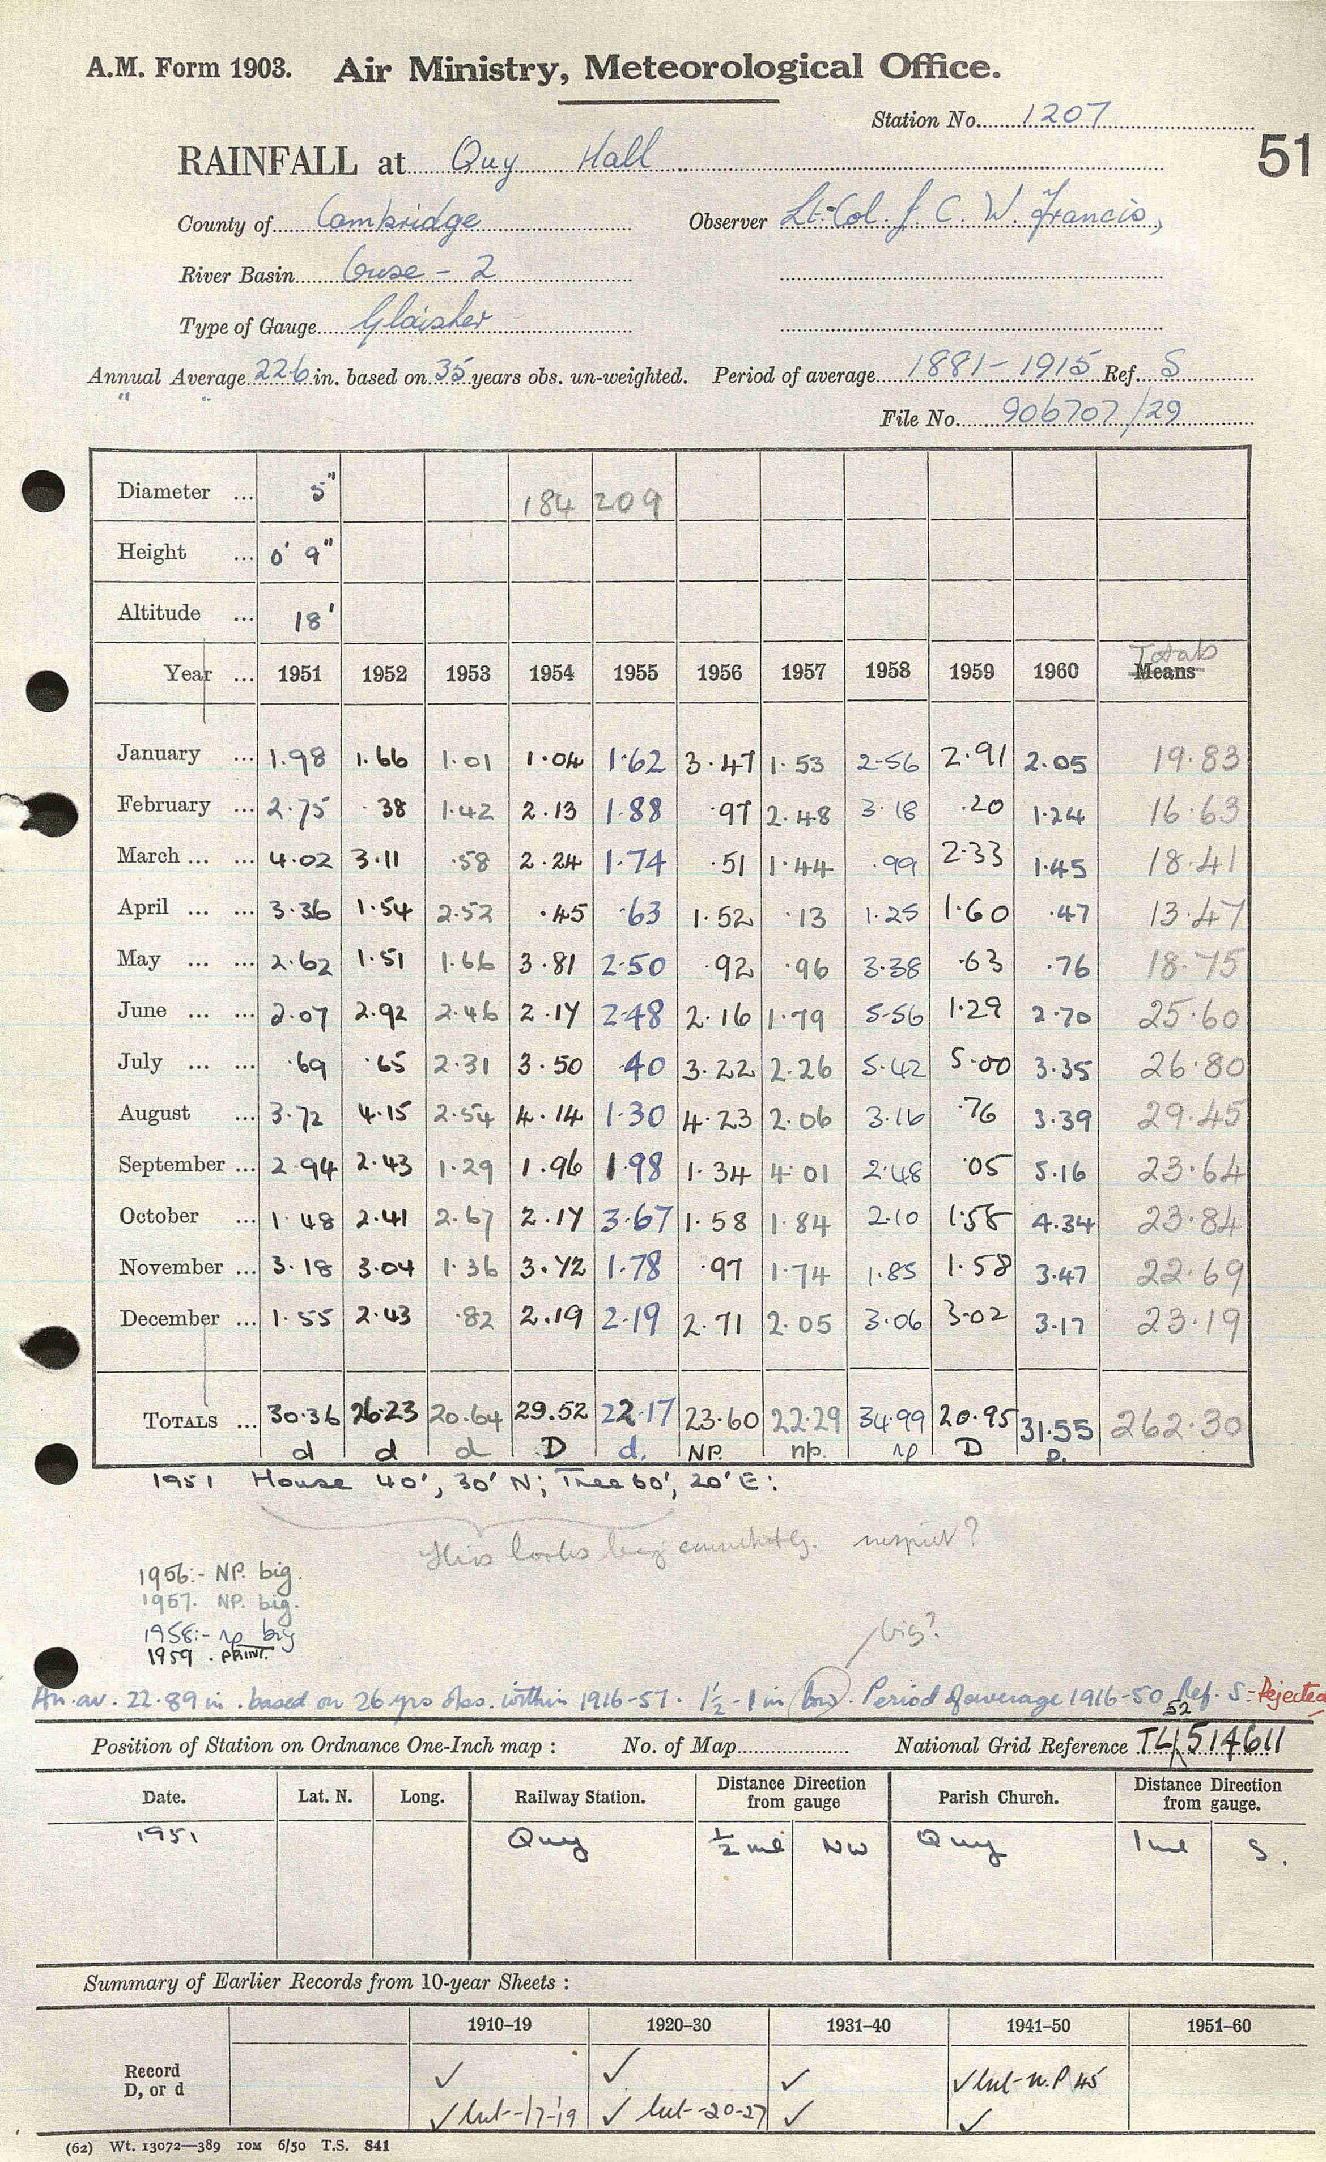 A.M. Form 1903. Air Ministry, Meteorological Office.
Station No. 1207
51
RAINFALL at Quy Hall
County of Cambridge Observer Lt-Col. J. C. W. Francis,
River Basin Ouse - 2
Type of Gauge Glaisher
Annual Average 22.6 in. based on 35 years obs. un-weighted. Period of average 1881-1915 Ref. S
" "
File No. 906707/29
Diameter ... 5" 184 209
Height ... 0' 9"
Altitude ... 18'
Totals
Year ... 1951 1952 1953 1954 1955 1956 1957 1958 1959 1960 Means
January ... 1.98 1.66 1.01 1.04 1.62 3.47 1.53 2.56 2.91 2.05 19.83
February ... 2.75 .38 1.42 2.13 1.88 .97 2.48 3.18 .20 1.24 16.63
March ... ... 4.02 3.11 .58 2.24 1.74 .51 1.44 .99 2.33 1.45 18.41
April ... ... 3.36 1.54 2.52 .45 .63 1.52 .13 1.25 1.60 .47 13.47
May ... ... 2.62 1.51 1.66 3.81 2.50 .92 .96 3.38 .63 .76 18.75
June ... ... 2.07 2.92 2.46 2.17 2.48 2.16 1.79 5.56 1.29 2.70 25.60
July ... ... .69 .65 2.31 3.50 .40 3.22 2.26 5.42 5.00 3.35 26.80
August ... 3.72 4.15 2.54 4.14 1.30 4.23 2.06 3.16 .76 3.39 29.45
September ... 2.94 2.43 1.29 1.96 1.98 1.34 4.01 2.48 .05 5.16 23.64
October ... 1.48 2.41 2.67 2.17 3.67 1.58 1.84 2.10 1.58 4.34 23.84
November ... 3.18 3.04 1.36 3.72 1.78 .97 1.74 1.85 1.58 3.47 22.69
December ... 1.55 2.43 .82 2.19 2.19 2.71 2.05 3.06 3.02 3.17 23.19
TOTALS ... 30.36 26.23 20.64 29.52 22.17 23.60 22.29 34.99 20.95 31.55 262.30
d d d D d. NP. np. np D P.
1951 House 40', 30' N; Tree 60', 20' E:
This looks big
1956:- NP. big.
1957. NP. big.
1958:- np big
1959. PRINT.
big?
An. av. 22.89 in. based on 26 yrs obs. within 1916-57. 1½-1 in low. Period of average 1916-50 Ref. S - Rejected
52
Position of Station on Ordnance One-Inch map : No. of Map National Grid Reference TL 514611
Date. Lat. N. Long. Railway Station. Distance from gauge Direction Parish Church. Distance from gauge. Direction
1951 Quy ½ ml NW Quy 1 ml S.
Summary of Earlier Records from 10-year Sheets :
1910-19 1920-30 1931-40 1941-50 1951-60
Record D, or d ✓ ✓ ✓ ✓ but n.P 45
✓ but -17-19 ✓ but -20-27 ✓ ✓
(62) Wt. 13072—389 IOM 6/50 T.S. 841